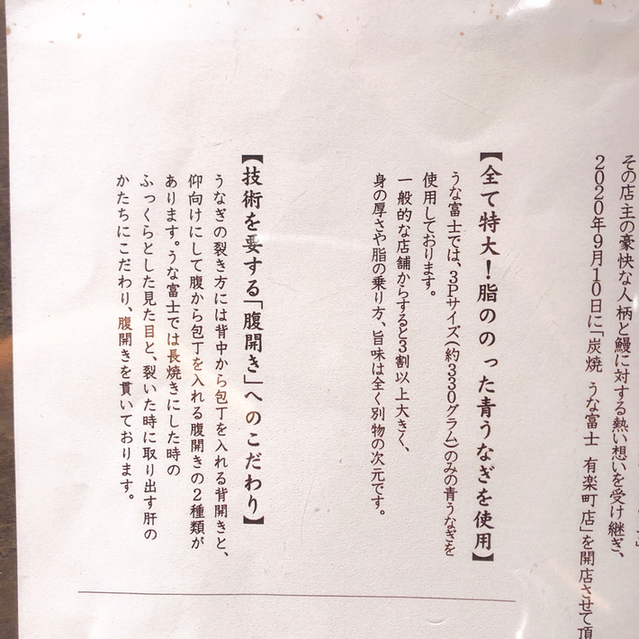 その店主の豪快な人柄と鰻に対する熱い想いを受け継ぎ、
2020年9月10日に「炭焼 うな富士 有楽町店」を開店させて頂
【全て特大！脂ののった青うなぎを使用】
うな富士では、3Pサイズ（約330グラム）のみの青うなぎを
使用しております。
一般的な店舗からすると3割以上大きく、
身の厚さや脂の乗り方、旨味は全く別物の次元です。
【技術を要する「腹開き」へのこだわり】
うなぎの裂き方には背中から包丁を入れる背開きと、
仰向けにして腹から包丁を入れる腹開きの2種類が
あります。うな富士では長焼きにした時の
ふっくらとした見た目と、裂いた時に取り出す肝の
かたちにこだわり、腹開きを貫いております。